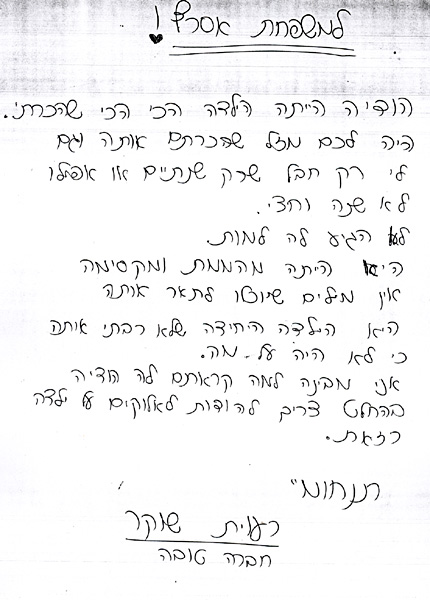 למשפחת אסרף !
הודיה הייתה הילדה הכי הכי שהכרתי.
היה לכם מזל שהכרתם אותה וגם
לי רק חבל שרק שנתיים או אפילו
לא שנה וחצי.
לא הגיע לה למות.
היא הייתה מהממת ומקסימה
אין מילים שיוכלו לתאר אותה
היא הילדה היחידה שלא רבתי איתה
כי לא היה על מה.
אני מבינה למה קראתם לה הודיה
בהחלט צריך להודות לאלוקים על ילדה
כזאת.
תנחומי"
רעוית שוקר
חברה טובה